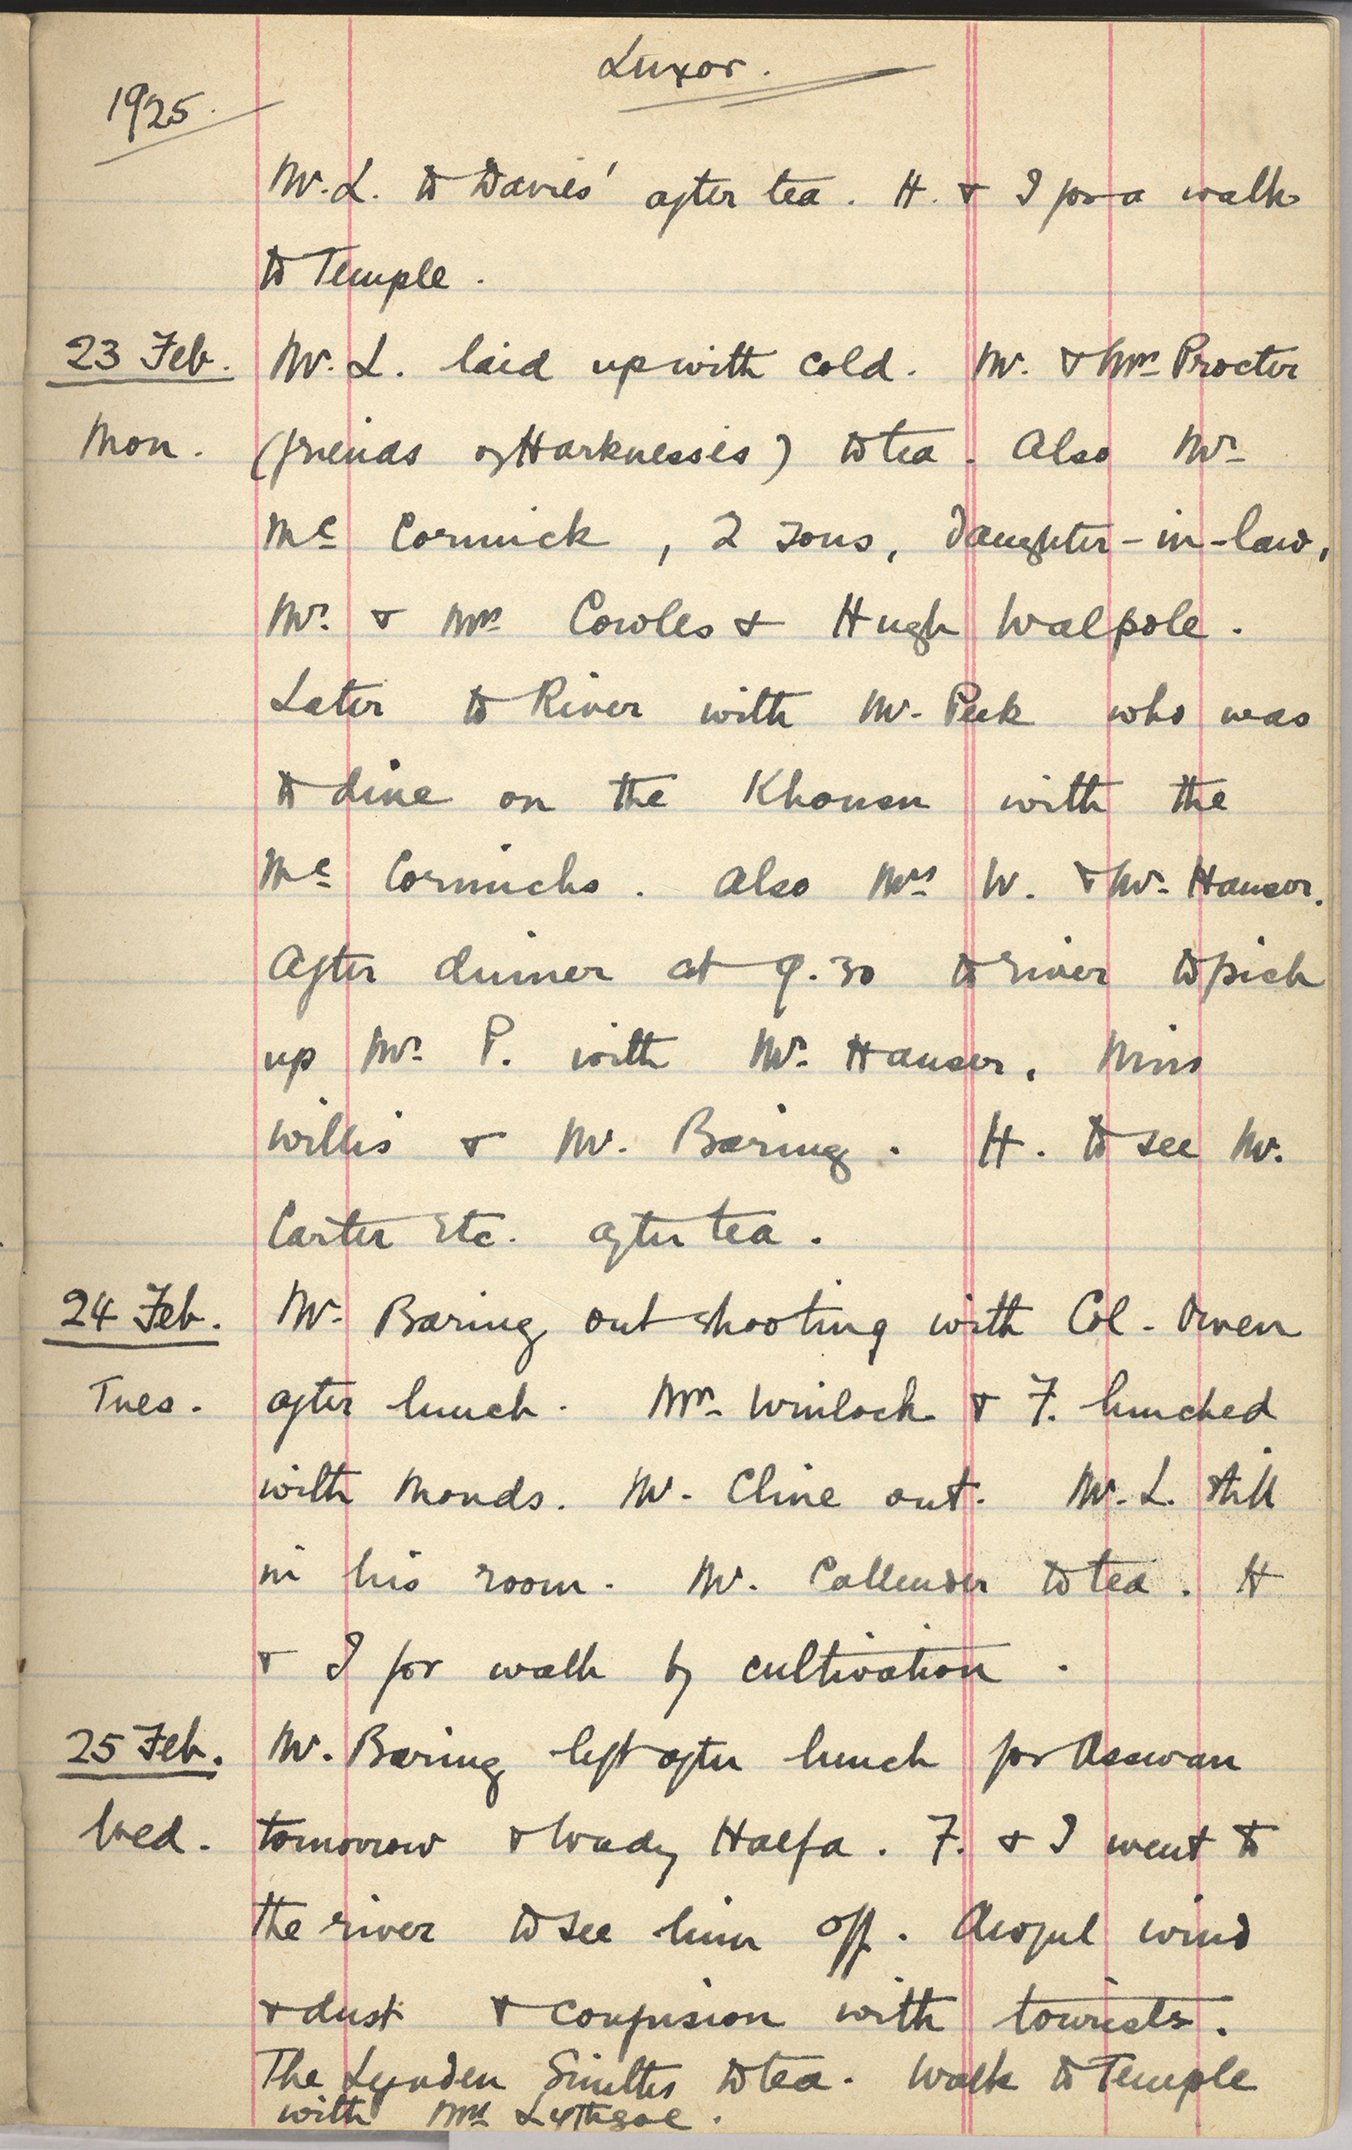 Luxor.
1925.
Mr. L. to Davies' after tea. H. & I for a walk
to Temple.
23 Feb. Mr. L. laid up with cold. Mr. & Mrs Procter
Mon. (friends of Harknesses) to tea. Also Mr
Mc Cormick, 2 sons, daughter-in-law,
Mr. & Mrs Cowles & Hugh Walpole.
Later to River with Mr. Peek who was
to dine on the Khonsu with the
Mc Cormicks. Also Mrs W. & Mr. Hauser.
After dinner at 9.30 to river to pick
up Mr. P. with Mr. Hauser, Miss
Willis & Mr. Baring. H. to see Mr.
Carter etc. after tea.
24 Feb. Mr. Baring out shooting with Col. Owen
Tues. after lunch. Mrs. Winlock & F. lunched
with Monds. Mr. Cline out. Mr. L. still
in his room. Mr. Callender to tea. H
& I for walk by cultivation.
25 Feb. Mr. Baring left after lunch for Asswan
Wed. tomorrow & Wady Halfa. F. & I went to
the river to see him off. Awful wind
& dust & confusion with tourists.
The Lynden Smiths to tea. Walk to Temple
with Mrs Lythgoe.